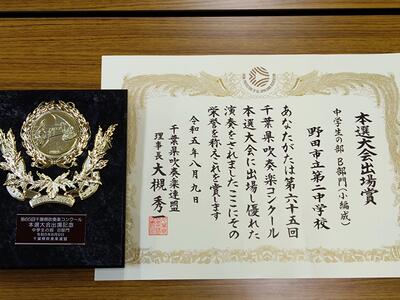 本選大会出場賞
中学生の部 B部門(小編成)
野田市立第二中学校
あなたがたは第六十五回
千葉県吹奏楽コンクール
本選大会に出場し優れた
演奏をされましたここにその
栄誉を称えこれを賞します
令和五年八月九日
千葉県吹奏楽連盟
理事長 大槻秀一
第65回千葉県吹奏楽コンクール
本選大会出演記念
中学生の部 B部門
令和5年8月9日
千葉県吹奏楽連盟